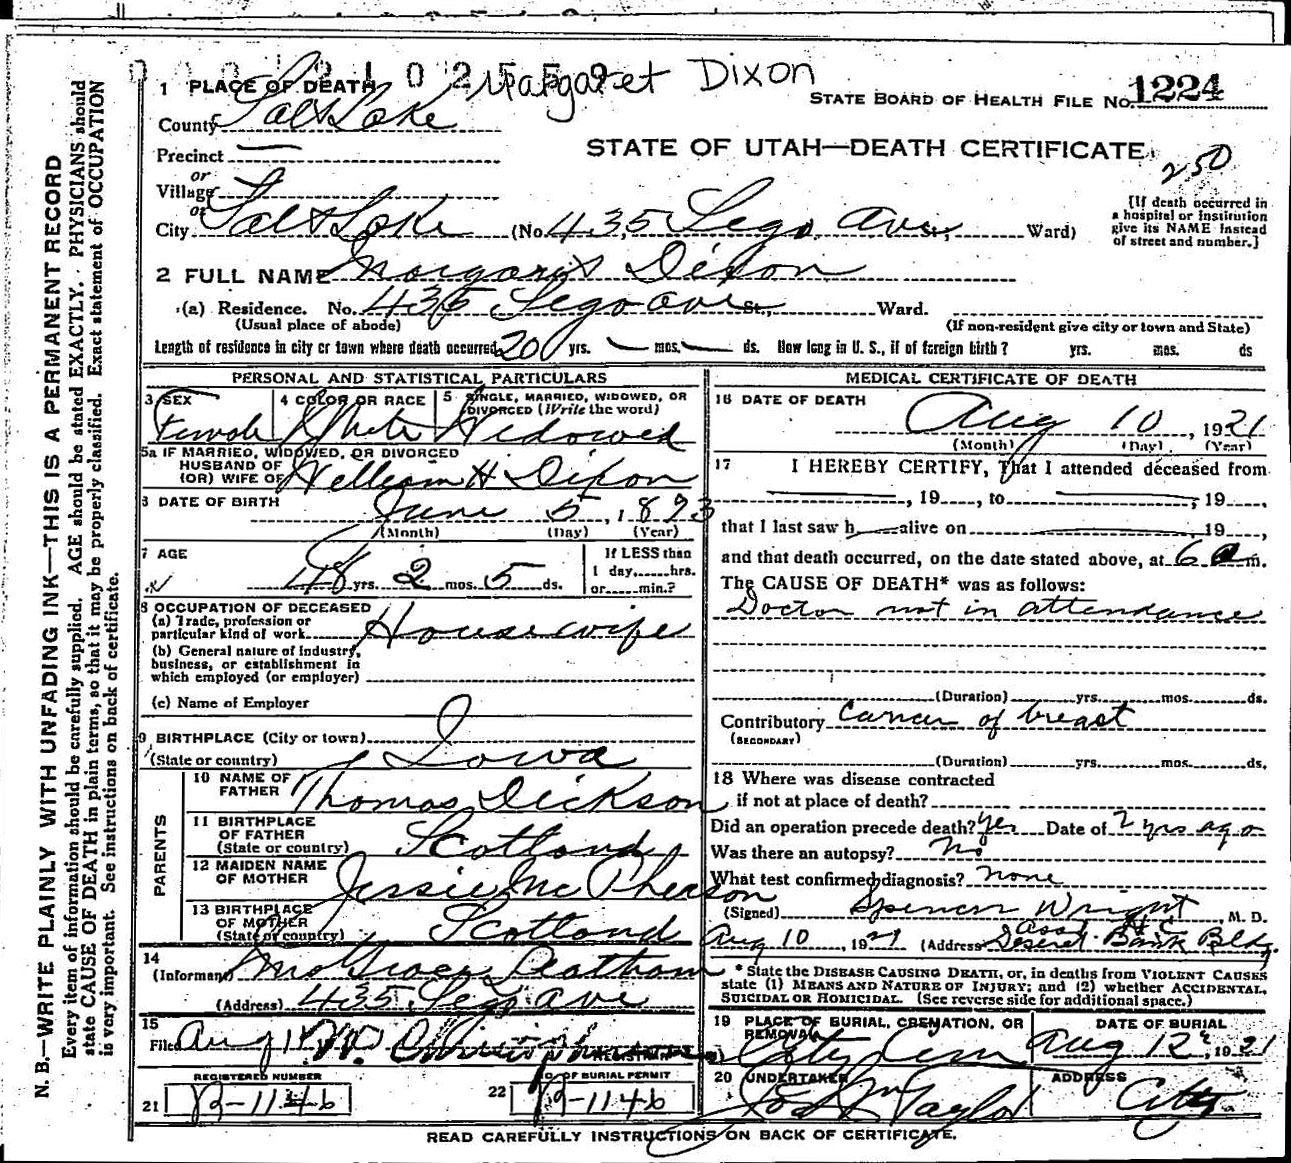 0 0 0 2 1 0 2 5 5 9 Margaret Dixon
1 PLACE OF DEATH
STATE BOARD OF HEALTH FILE No. 1224
County Salt Lake
STATE OF UTAH—DEATH CERTIFICATE
250
Precinct —
or
Village
or
City Salt Lake (No. 435, Sego Ave., Ward)
[If death occurred in
a hospital or institution
give its NAME instead
of street and number.]
2 FULL NAME Margaret Dixon
(a) Residence. No. 435 Sego Ave St., Ward.
(Usual place of abode) (If non-resident give city or town and State)
Length of residence in city or town where death occurred 20 yrs. — mos. — ds. How long in U. S., if of foreign birth? yrs. mos. ds
PERSONAL AND STATISTICAL PARTICULARS
3 SEX
Female
4 COLOR OR RACE
White
5 SINGLE, MARRIED, WIDOWED, OR
DIVORCED (Write the word)
Widowed
5a IF MARRIED, WIDOWED, OR DIVORCED
HUSBAND OF
(OR) WIFE OF William H Dixon
6 DATE OF BIRTH
June 5, 1873
(Month) (Day) (Year)
7 AGE
48 yrs. 2 mos. 5 ds.
If LESS than
1 day,......hrs.
or......min.?
8 OCCUPATION OF DECEASED
(a) Trade, profession or
particular kind of work Housewife
(b) General nature of industry,
business, or establishment in
which employed (or employer)
(c) Name of Employer
9 BIRTHPLACE (City or town)
(State or country) Iowa
PARENTS
10 NAME OF
FATHER Thomas Dickson
11 BIRTHPLACE
OF FATHER
(State or country) Scotland
12 MAIDEN NAME
OF MOTHER Jessie McPherson
13 BIRTHPLACE
OF MOTHER
(State or country) Scotland
14
(Informant) Mrs Grace
(Address) 435 Sego Ave
15
Filed Aug
REGISTRAR
REGISTERED NUMBER
21 R-1146
NO. OF BURIAL PERMIT
22 R-1146
MEDICAL CERTIFICATE OF DEATH
16 DATE OF DEATH
Aug 10, 1921
(Month) (Day) (Year)
17 I HEREBY CERTIFY, That I attended deceased from
—, 19...., to —, 19....,
that I last saw h — alive on — 19....,
and that death occurred, on the date stated above, at 6 a m.
The CAUSE OF DEATH* was as follows:
Doctor not in attendance
(Duration)......yrs......mos......ds.
Contributory Cancer of breast
(SECONDARY)
(Duration)......yrs......mos......ds.
18 Where was disease contracted
if not at place of death?
Did an operation precede death? Yes Date of 2 yrs ago
Was there an autopsy? No
What test confirmed diagnosis? none
(Signed) Spencer Wright, M. D.
Asst. H C
Aug 10, 1921 (Address) Deseret Bank Bldg.
* State the DISEASE CAUSING DEATH, or, in deaths from VIOLENT CAUSES
state (1) MEANS AND NATURE OF INJURY; and (2) whether ACCIDENTAL,
SUICIDAL OR HOMICIDAL. (See reverse side for additional space.)
19 PLACE OF BURIAL, CREMATION, OR
REMOVAL
City Cem
DATE OF BURIAL
Aug 12, 1921
20 UNDERTAKER
Jos Wm Taylor
ADDRESS
City
READ CAREFULLY INSTRUCTIONS ON BACK OF CERTIFICATE.
N. B.—WRITE PLAINLY WITH UNFADING INK—THIS IS A PERMANENT RECORD
Every item of information should be carefully supplied. AGE should be stated EXACTLY. PHYSICIANS should
state CAUSE OF DEATH in plain terms, so that it may be properly classified. Exact statement of OCCUPATION
is very important. See instructions on back of certificate.